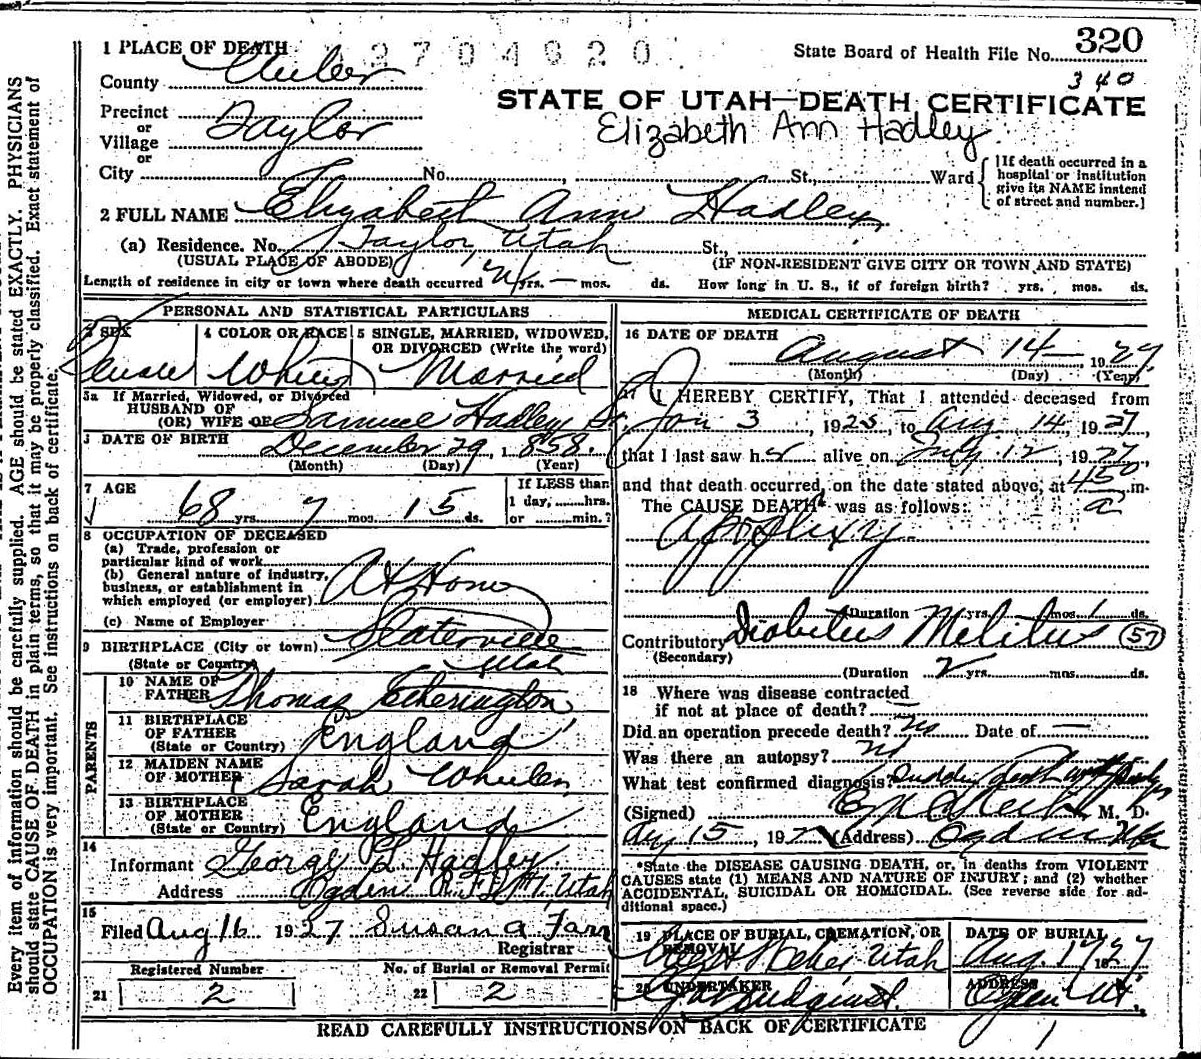 1 PLACE OF DEATH
2704920
State Board of Health File No. 320
340
County Weber
STATE OF UTAH—DEATH CERTIFICATE
Elizabeth Ann Hadley
Precinct
or
Village Taylor
or
City No. St., Ward
[If death occurred in a hospital or institution give its NAME instead of street and number.]
2 FULL NAME Elizabeth Ann Hadley
(a) Residence. No. Taylor, Utah St.,
(USUAL PLACE OF ABODE) (IF NON-RESIDENT GIVE CITY OR TOWN AND STATE)
Length of residence in city or town where death occurred yrs. — mos. ds. How long in U. S., if of foreign birth? yrs. mos. ds.
PERSONAL AND STATISTICAL PARTICULARS
3 SEX 4 COLOR OR RACE 5 SINGLE, MARRIED, WIDOWED, OR DIVORCED (Write the word)
Female White Married
5a If Married, Widowed, or Divorced
HUSBAND OF
(OR) WIFE OF Samuel Hadley Sr.
DATE OF BIRTH December 29, 1858.
(Month) (Day) (Year)
7 AGE
68 yrs. 7 mos. 15 ds.
If LESS than
1 day, hrs.
or min.?
8 OCCUPATION OF DECEASED
(a) Trade, profession or
particular kind of work
(b) General nature of industry,
business, or establishment in
which employed (or employer) At Home
(c) Name of Employer
9 BIRTHPLACE (City or town) Slaterville
(State or Country) Utah
PARENTS
10 NAME OF
FATHER Thomas Etherington
11 BIRTHPLACE
OF FATHER
(State or Country) England
12 MAIDEN NAME
OF MOTHER Sarah Wheeler
13 BIRTHPLACE
OF MOTHER
(State or Country) England
14
Informant George L Hadley
Address Ogden R.F.D. #1, Utah
15
Filed Aug 16 1927 Susan A Farr
Registrar
Registered Number No. of Burial or Removal Permit
21 2 22 2
MEDICAL CERTIFICATE OF DEATH
16 DATE OF DEATH
August 14— 1927
(Month) (Day) (Year)
17 I HEREBY CERTIFY, That I attended deceased from
Jan 3, 1925, to Aug 14, 1927,
that I last saw her alive on July 12, 1927
and that death occurred, on the date stated above, at 450 a m.
The CAUSE DEATH* was as follows:
Apoplexy
(Duration yrs. mos. 1 ds.
Contributory Diabetus Melitus 57
(Secondary)
(Duration 2 yrs. mos. ds.
18 Where was disease contracted
if not at place of death?
Did an operation precede death? no Date of —
Was there an autopsy? no
What test confirmed diagnosis? Sudden death with
(Signed) M. D.
Aug 15, 1927 (Address) Ogden Utah
*State the DISEASE CAUSING DEATH, or, in deaths from VIOLENT
CAUSES state (1) MEANS AND NATURE OF INJURY; and (2) whether
ACCIDENTAL, SUICIDAL OR HOMICIDAL. (See reverse side for ad-
ditional space.)
19 PLACE OF BURIAL, CREMATION, OR REMOVAL DATE OF BURIAL
West Weber Utah Aug. 17 1927
20 UNDERTAKER ADDRESS
Ogden Ut.
READ CAREFULLY INSTRUCTIONS ON BACK OF CERTIFICATE
Every item of information should be carefully supplied. AGE should be stated EXACTLY. PHYSICIANS
should state CAUSE OF DEATH in plain terms, so that it may be properly classified. Exact statement of
OCCUPATION is very important. See instructions on back of certificate.